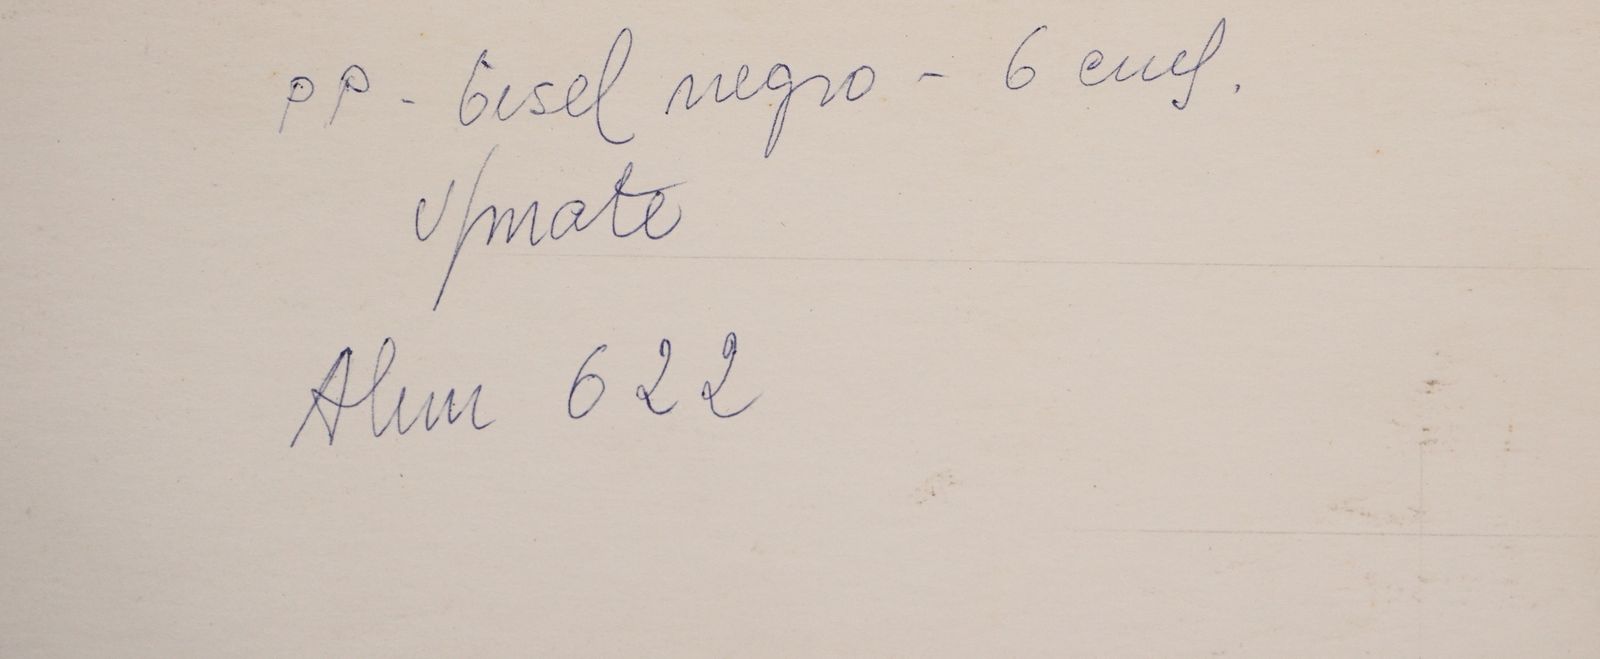 PP - bisel negro - 6 cms.
V/mate
Alum 622